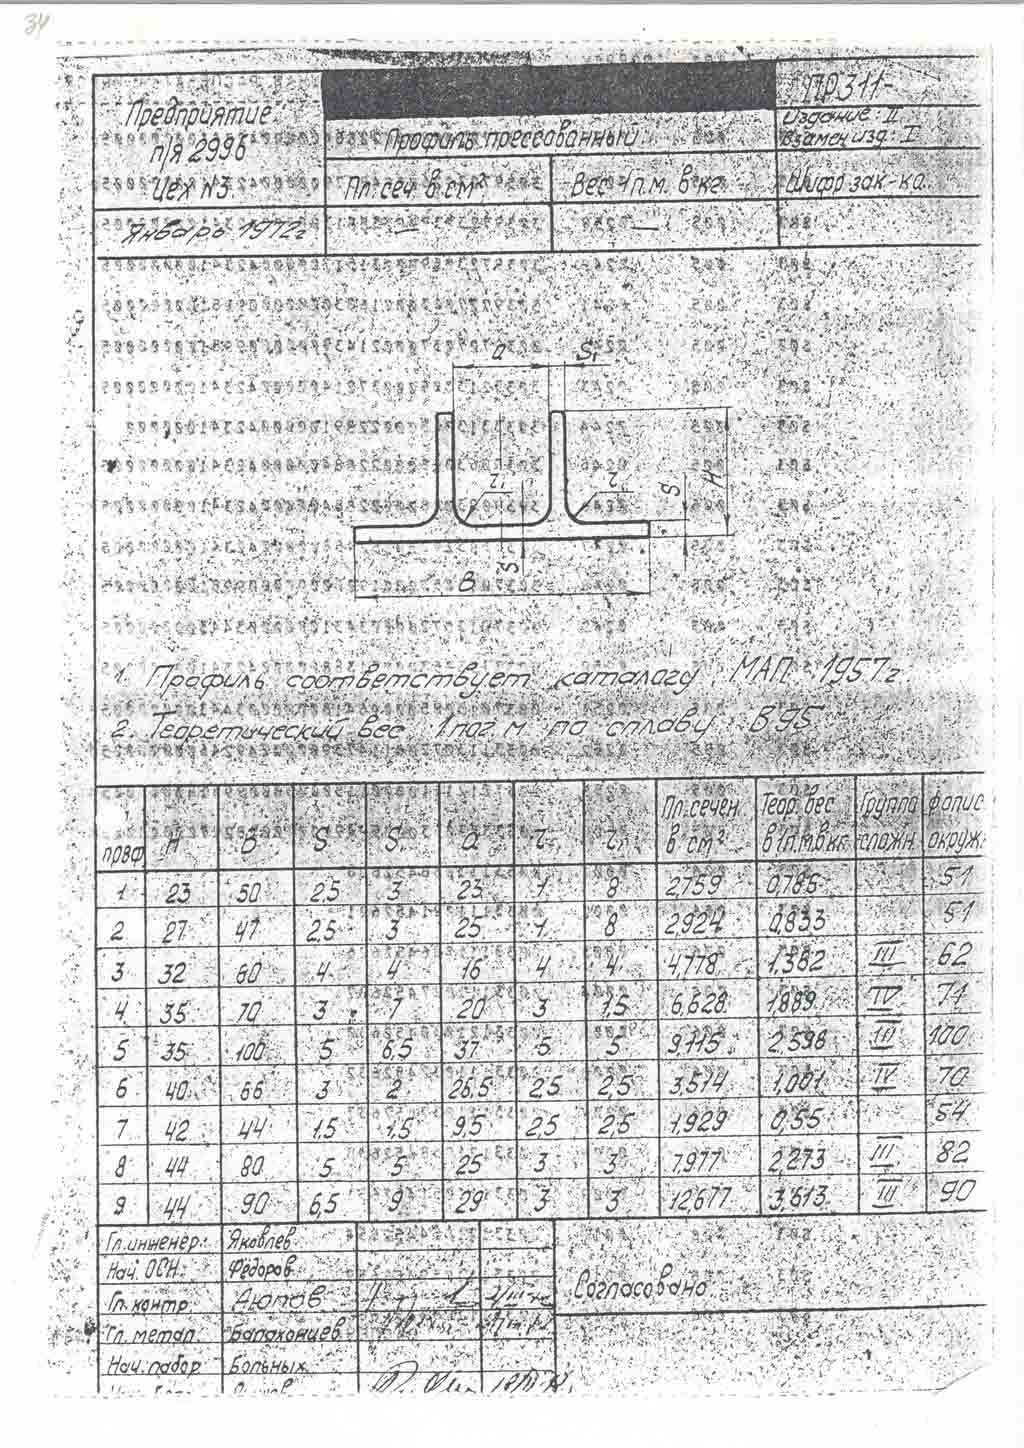 34
Предприятие
п/я 2996
Цех №3
Январь 1972г
Профиль прессованный
Пл. сеч. в см²
Вес 1п.м. в кг
—
—
ПР311-
Издание: II
Взамен изд: I
Шифр зак-ка.
a
S₁
H
S
S
B
1. Профиль соответствует каталогу МАП 1957г
2. Теоретический вес 1 пог. м по сплаву В95
проф H B S S₁ a Пл. сечен. в см² Теор. вес в 1п.м.в кг Группа сложн. окруж.
1 23 50 2,5 3 23 1 8 2,759 0,785 51
2 27 47 2,5 3 25 1 8 2,924 0,833 51
3 32 60 4 4 16 4 4 4,778 1,362 III 62
4 35 70 3 7 20 3 1,5 6,628 1,889 IV 71
5 35 100 5 6,5 37 5 5 9,115 2,598 III 100
6 40 66 3 2 26,5 2,5 2,5 3,514 1,001 IV 70
7 42 44 1,5 1,5 9,5 2,5 2,5 1,929 0,55 54
8 44 80 5 5 25 3 3 7,977 2,273 III 82
9 44 90 6,5 9 29 3 3 12,677 3,613 III 90
Гл. инженер. Яковлев
Нач. ОСН Федоров
Гл. контр
Гл. метал. Балахонцев
Нач. лабор Больных
Согласовано